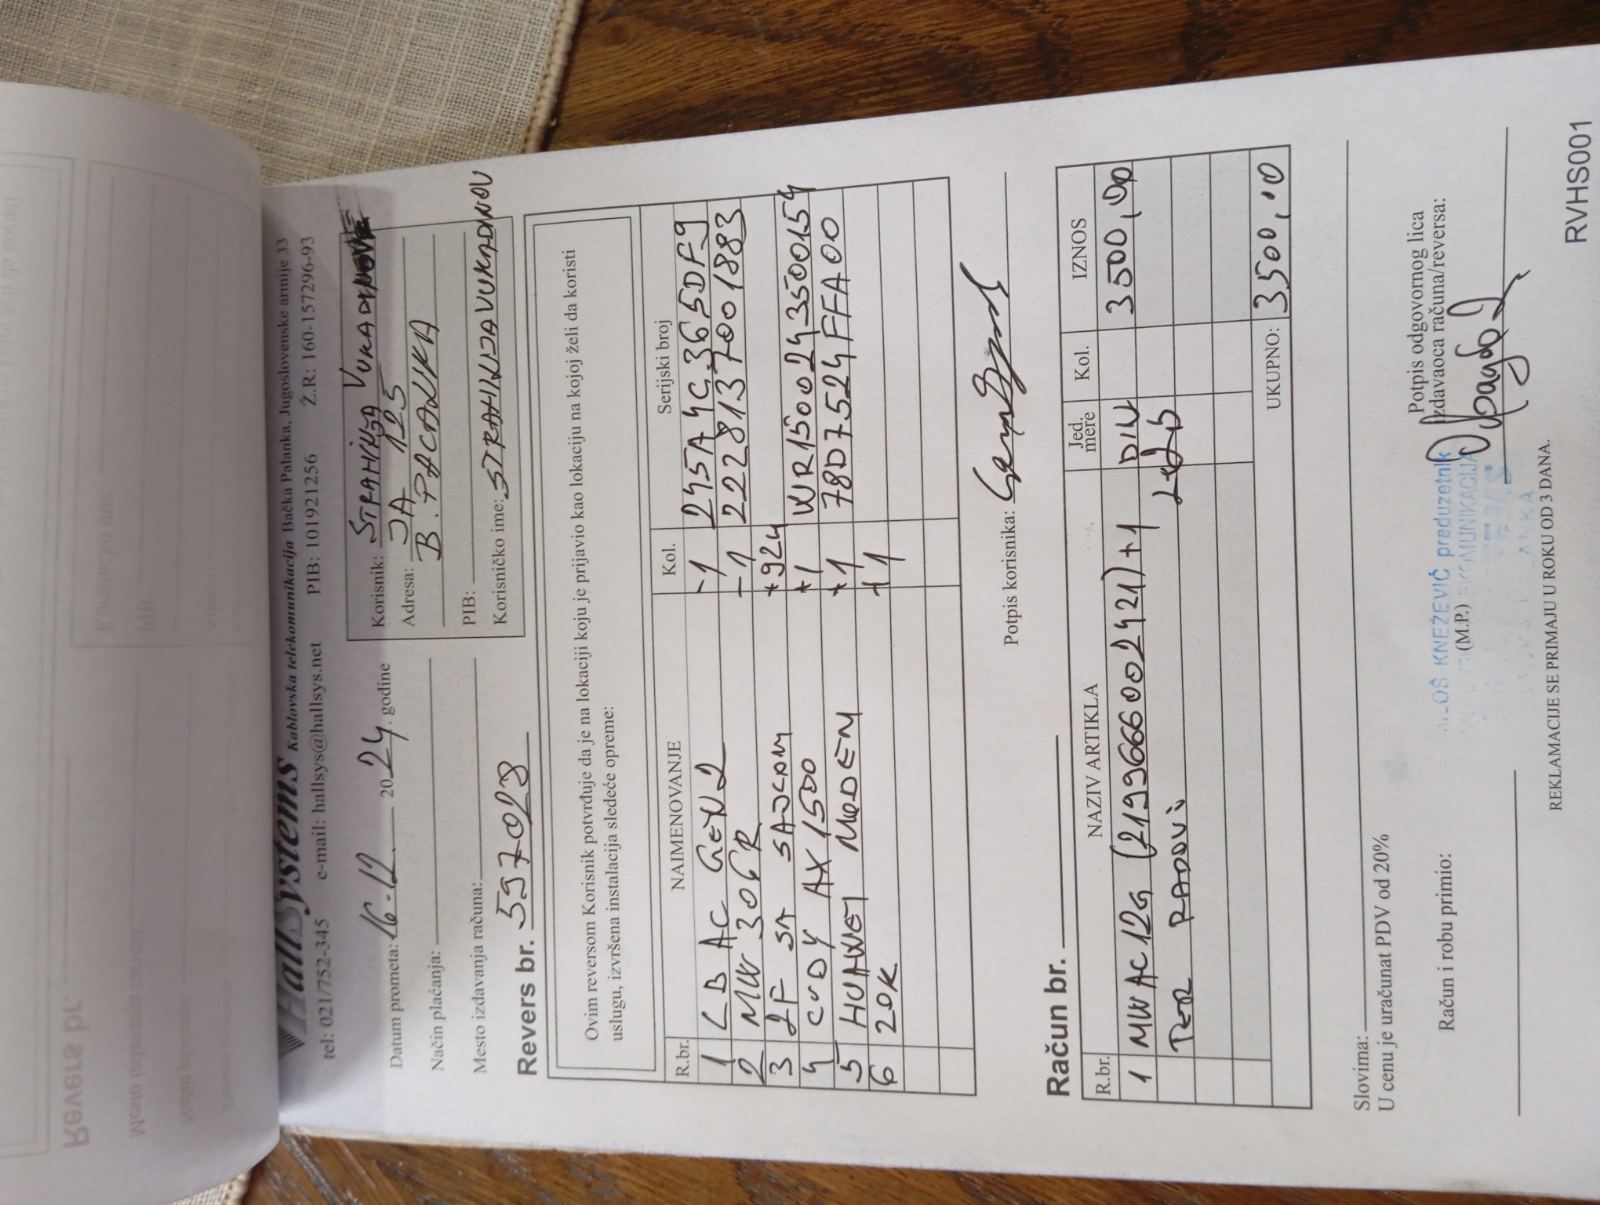 HallSystems Kablovska telekomunikacija Bačka Palanka, Jugoslovenske armije 33
tel: 021/752-345 e-mail: hallsys@hallsys.net PIB: 101921256 Ž.R: 160-157296-93
Datum prometa: 16-12. 2024. godine
Način plaćanja:
Mesto izdavanja računa:
Korisnik: STRAHINJA VUKADINOV
Adresa: JA 125
B. PALANKA
PIB:
Korisničko ime: STRAHINJAVUKADINOV
Revers br. 597023
Ovim reversom Korisnik potvrđuje da je na lokaciji koju je prijavio kao lokaciju na kojoj želi da koristi
uslugu, izvršena instalacija sledeće opreme:
R.br. NAIMENOVANJE Kol. Serijski broj
1 LB AC GEN2 -1 245A4C365DF9
2 MW 306R -1 2228137001883
3 2F SA SAJLOM +924
4 CUDY AX1500 +1 WR1500243500154
5 HUAWEI MODEM +1 78D7524FFA00
6 ZOK +1
Potpis korisnika:
Račun br.
R.br. NAZIV ARTIKLA Jed. mere Kol. IZNOS
1 MW AC12G (2196666002421)+1 DIN 3500,00
TER RADOVI
UKUPNO: 3500,00
Slovima:
U cenu je uračunat PDV od 20%
Račun i robu primio:
Potpis odgovornog lica
izdavaoca računa/reversa:
(M.P.)
KNEŽEVIĆ preduzetnik
REKLAMACIJE SE PRIMAJU U ROKU OD 3 DANA.
RVHS001